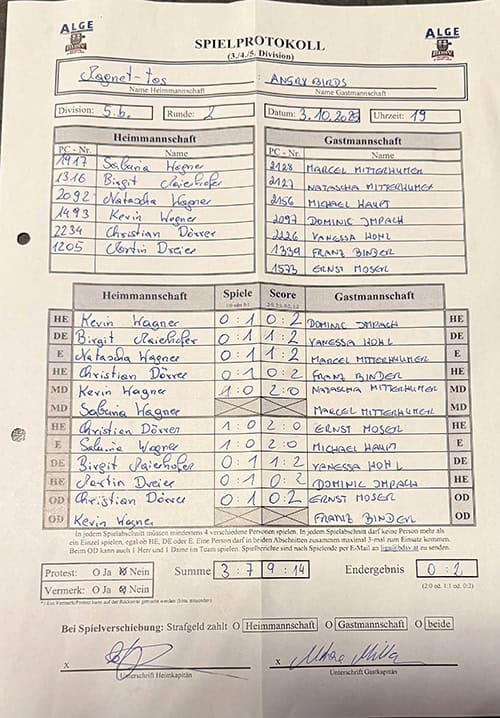 ALGE
ALGE
SPIELPROTOKOLL
(3./4./5. Division)
Magnet-tos ANGRY BIRDS
Name Heimmannschaft Name Gastmannschaft
Division: 5.b. Runde: 2 Datum: 3.10.2025 Uhrzeit: 19
Heimmannschaft Gastmannschaft
PC - Nr. Name PC - Nr. Name
1917 Sabrina Wagner 2128 MARCEL MITTERHUMER
1316 Birgit Maierhofer 2127 NATASCHA MITTERHUMER
2092 Natascha Wagner 2156 MICHAEL HAUPT
1493 Kevin Wagner 2097 DOMINIC IMPACH
2234 Christian Dörrer 2226 VANESSA HOHL
1205 Martin Dreier 1339 FRANZ BINDER
1573 ERNST MOSER
Heimmannschaft Spiele Score Gastmannschaft
1:0 oder 0:1 2:0, 2:1, 0:2, 1:2
HE Kevin Wagner 0:1 0:2 DOMINIC IMPACH HE
DE Birgit Maierhofer 0:1 1:2 VANESSA HOHL DE
E Natascha Wagner 0:1 1:2 MARCEL MITTERHUMER E
HE Christian Dörrer 0:1 0:2 FRANZ BINDER HE
MD Kevin Wagner 1:0 2:0 NATASCHA MITTERHUMER MD
MD Sabrina Wagner MARCEL MITTERHUMER MD
HE Christian Dörrer 1:0 2:0 ERNST MOSER HE
E Sabrina Wagner 1:0 2:0 MICHAEL HAUPT E
DE Birgit Maierhofer 0:1 1:2 VANESSA HOHL DE
HE Martin Dreier 0:1 0:2 DOMINIC IMPACH HE
OD Christian Dörrer 0:1 0:2 ERNST MOSER OD
OD Kevin Wagner FRANZ BINDER OD
In jedem Spielabschnitt müssen mindestens 4 verschiedene Personen spielen. In jedem Spielabschnitt darf keine Person mehr als
ein Einzel spielen, egal ob HE, DE oder E. Eine Person darf in beiden Abschnitten zusammen maximal 3-mal zum Einsatz kommen.
Beim OD kann auch 1 Herr und 1 Dame im Team spielen. Spielberichte sind nach Spielende per E-Mail an liga@bdsv.at zu senden.
Protest: O Ja Nein Summe 3:7 9:14 Endergebnis 0:2
Vermerk: O Ja Nein (2:0 od. 1:1 od. 0:2)
*) Ein Vermerk/Protest kann auf der Rückseite gemacht werden (bitte ankreuzen)
Bei Spielverschiebung: Strafgeld zahlt O Heimmannschaft O Gastmannschaft O beide
x x
Unterschrift Heimkapitän Unterschrift Gastkapitän